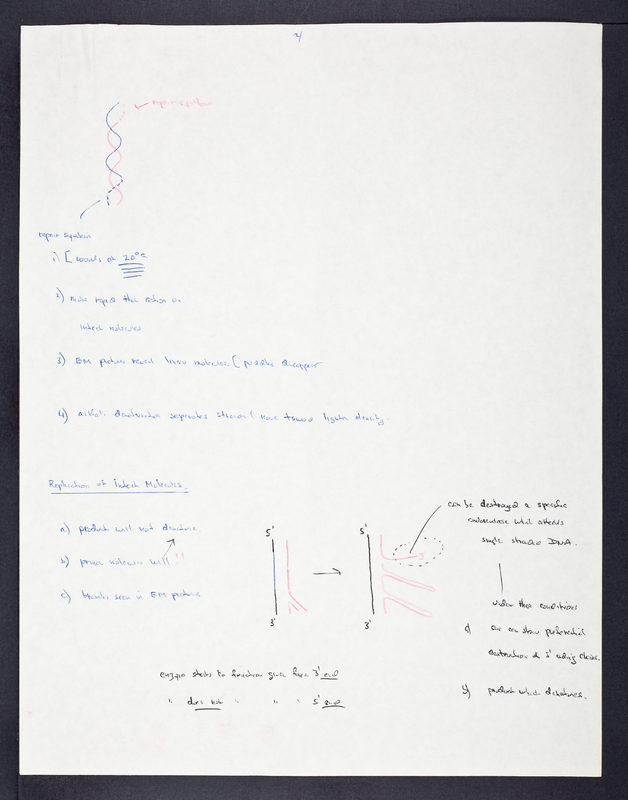 2/
repair synthesis
repair synthesis
1) [ works at 20°C
2) more rapid than action on
intact molecules
3) EM picture reveal linear molecules ( puddles disappear
4) alkali denaturation separates strands ( move toward lighter density
Replication of Intact Molecules.
a) product will not denature
b) primer molecules will !!
c) branches seen in EM picture
5'
3'
5'
3'
3'
can be destroyed a specific
endonuclease which attacks
single stranded DNA.
under these conditions
a) one can show preferential
destruction of 5' ending chains.
b) product which denatures.
enzyme starts to function given free 3' end
" does not " " " 5' end